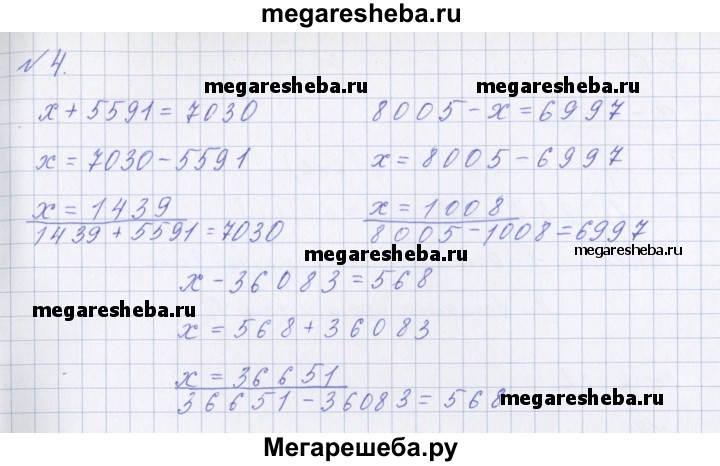 megaresheba.ru
№ 4.
megaresheba.ru megaresheba.ru
x + 5591 = 7030 8005 - x = 6997
x = 7030 - 5591 x = 8005 - 6997
x = 1439 x = 1008
1439 + 5591 = 7030 8005 - 1008 = 6997
megaresheba.ru megaresheba.ru
x - 36083 = 568
megaresheba.ru
x = 568 + 36083
x = 36651
36651 - 36083 = 568
megaresheba.ru
Мегарешеба.ру